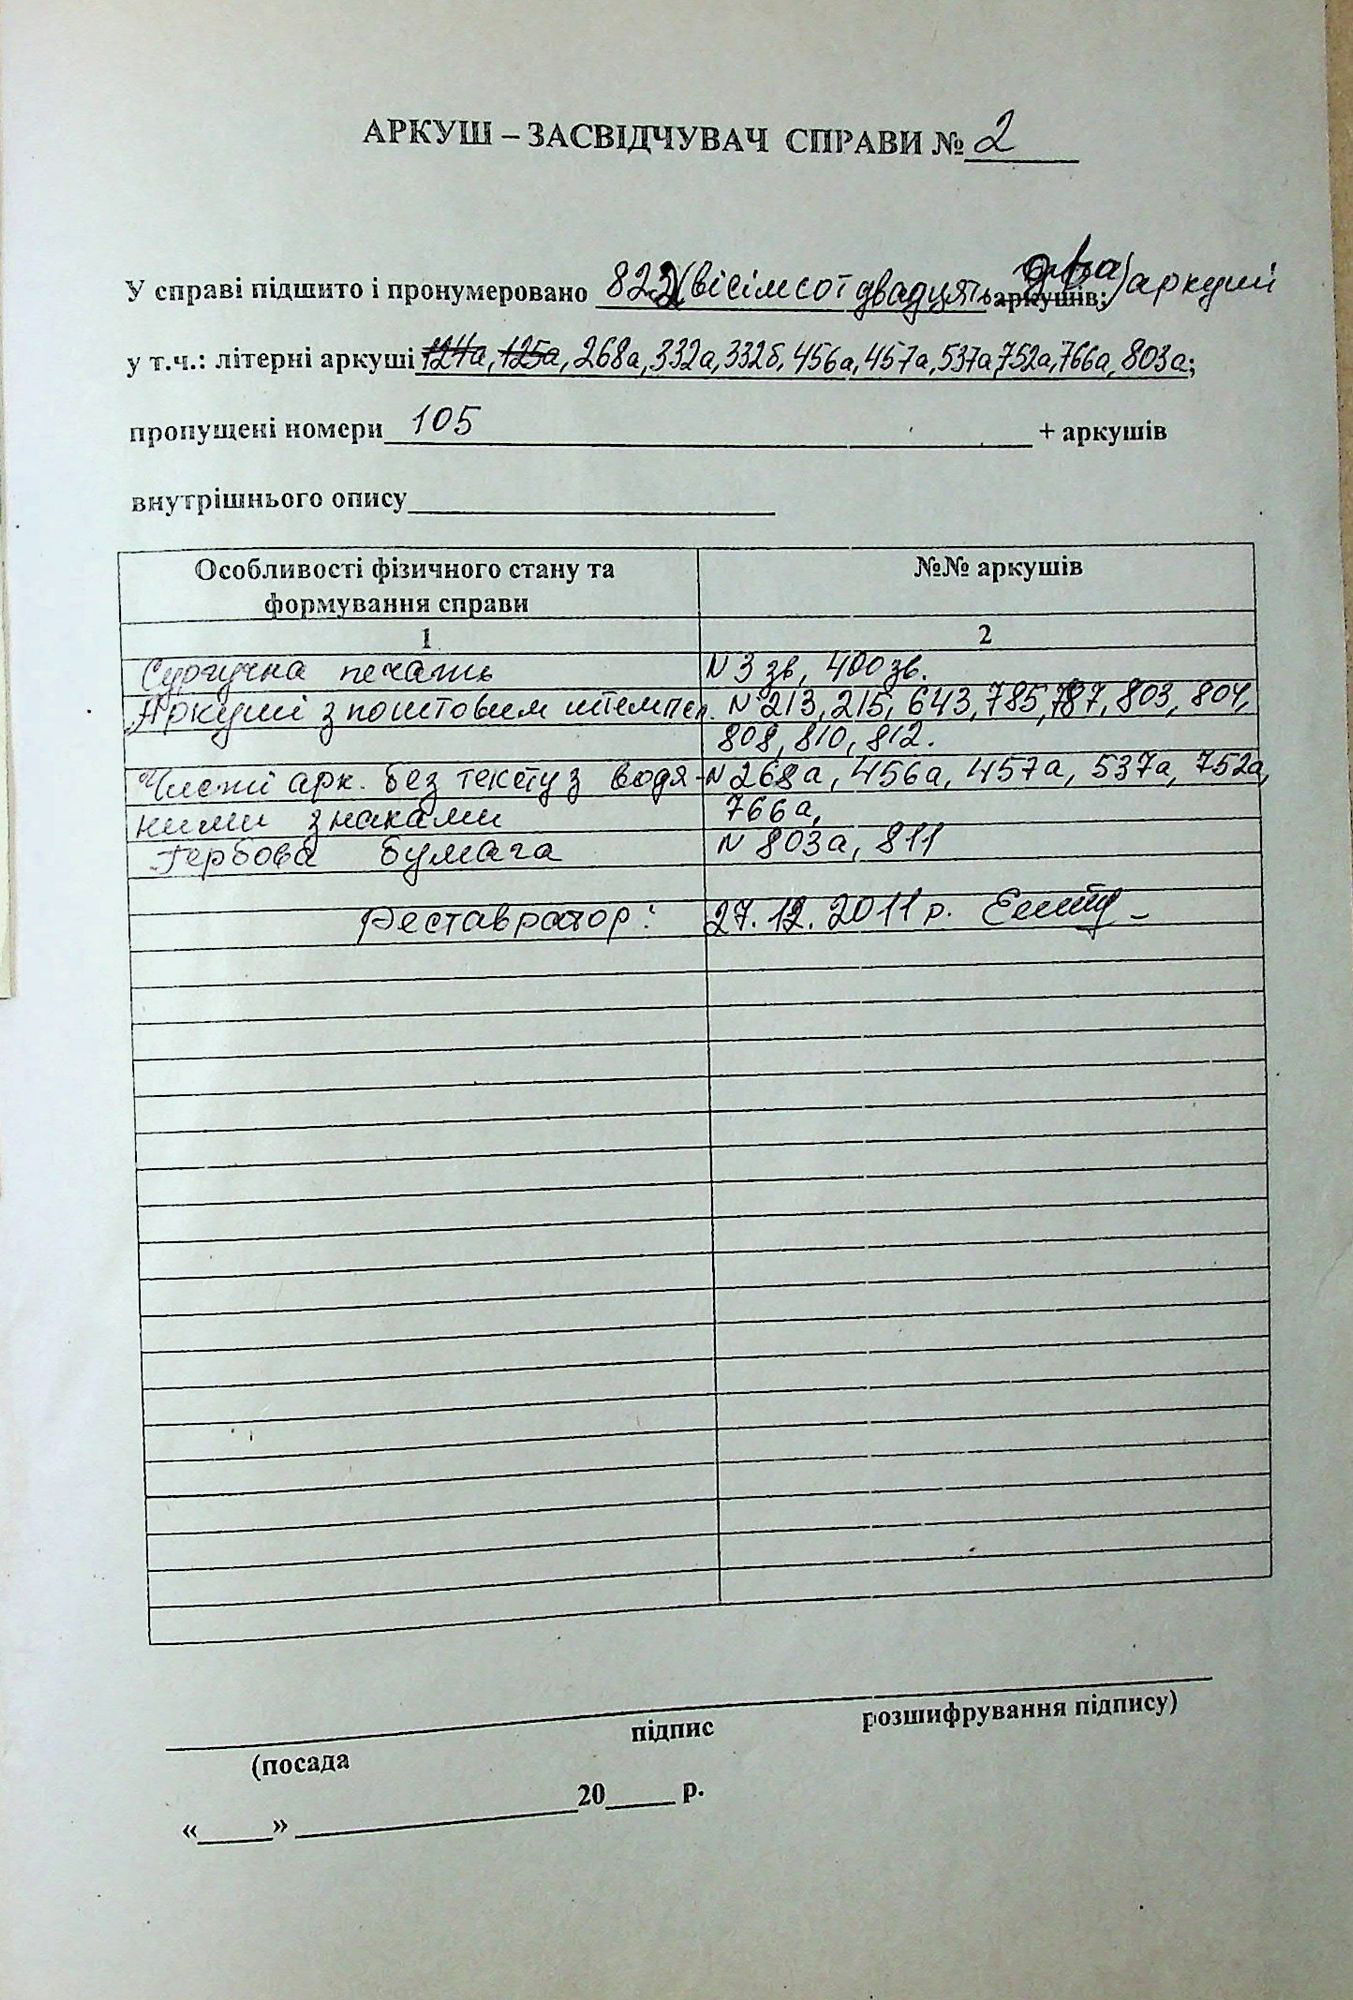 АРКУШ – ЗАСВІДЧУВАЧ СПРАВИ № 2
У справі підшито і пронумеровано 822 (вісімсот двадцять два) аркушів; аркуші
у т.ч.: літерні аркуші 124а, 125а, 268а, 332а, 332б, 456а, 457а, 537а, 752а, 766а, 803а;
пропущені номери 105 + аркушів
внутрішнього опису
Особливості фізичного стану та №№ аркушів
формування справи
1 2
Сургучна печать N 3 зв, 400 зв.
Аркуші з поштовим штемпел. N 213, 215, 643, 785, 787, 803, 804,
808, 810, 812.
Чисті арк. без тексту з водя- N 268а, 456а, 457а, 537а, 752а,
ними знаками 766а,
Гербова бумага N 803а, 811
Реставратор: 27.12.2011 р.
підпис розшифрування підпису)
(посада
« » 20 р.